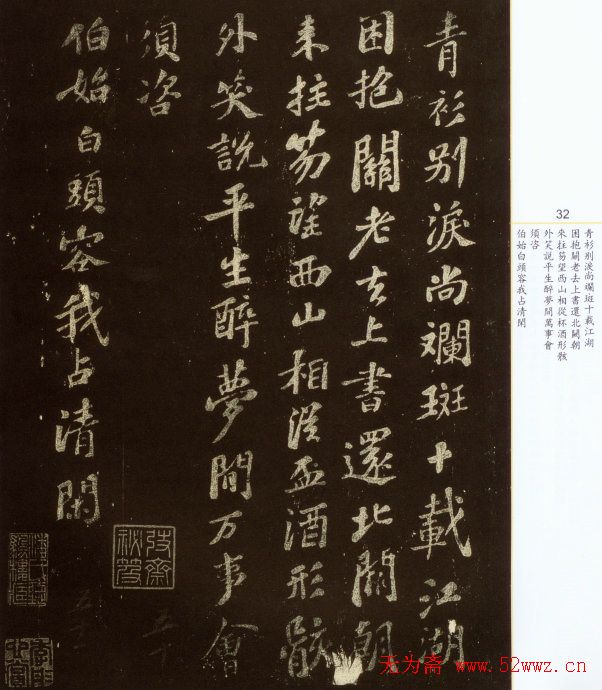 青衫別淚尚斓斑十載江湖
困抱關老去上書還北闕朝
来拄笏望西山相從盃酒形骸
外笑說平生醉夢間万事會
須咨
伯始白頭容我占清閑
32
青衫別淚尚斕斑十載江湖
困抱關老去上書還北闕朝
來拄笏望西山相從杯酒形骸
外笑說平生醉夢間萬事會
須咨
伯始白頭容我占清閑
天为斋 www.52wwz.cn